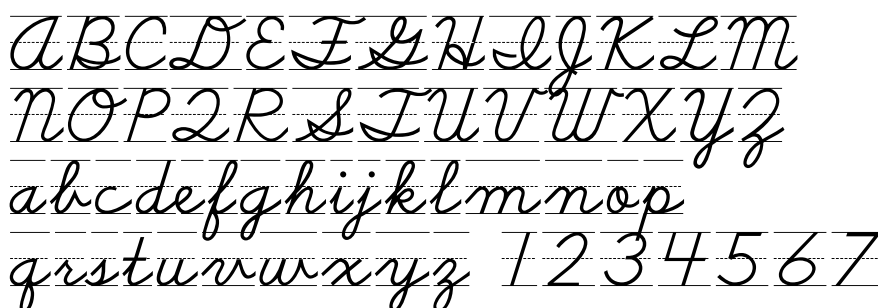 ABCDEFGHIJKLM
NOPQRSTUVWXYZ
abcdefghijklmnop
qrstuvwxyz 1234567